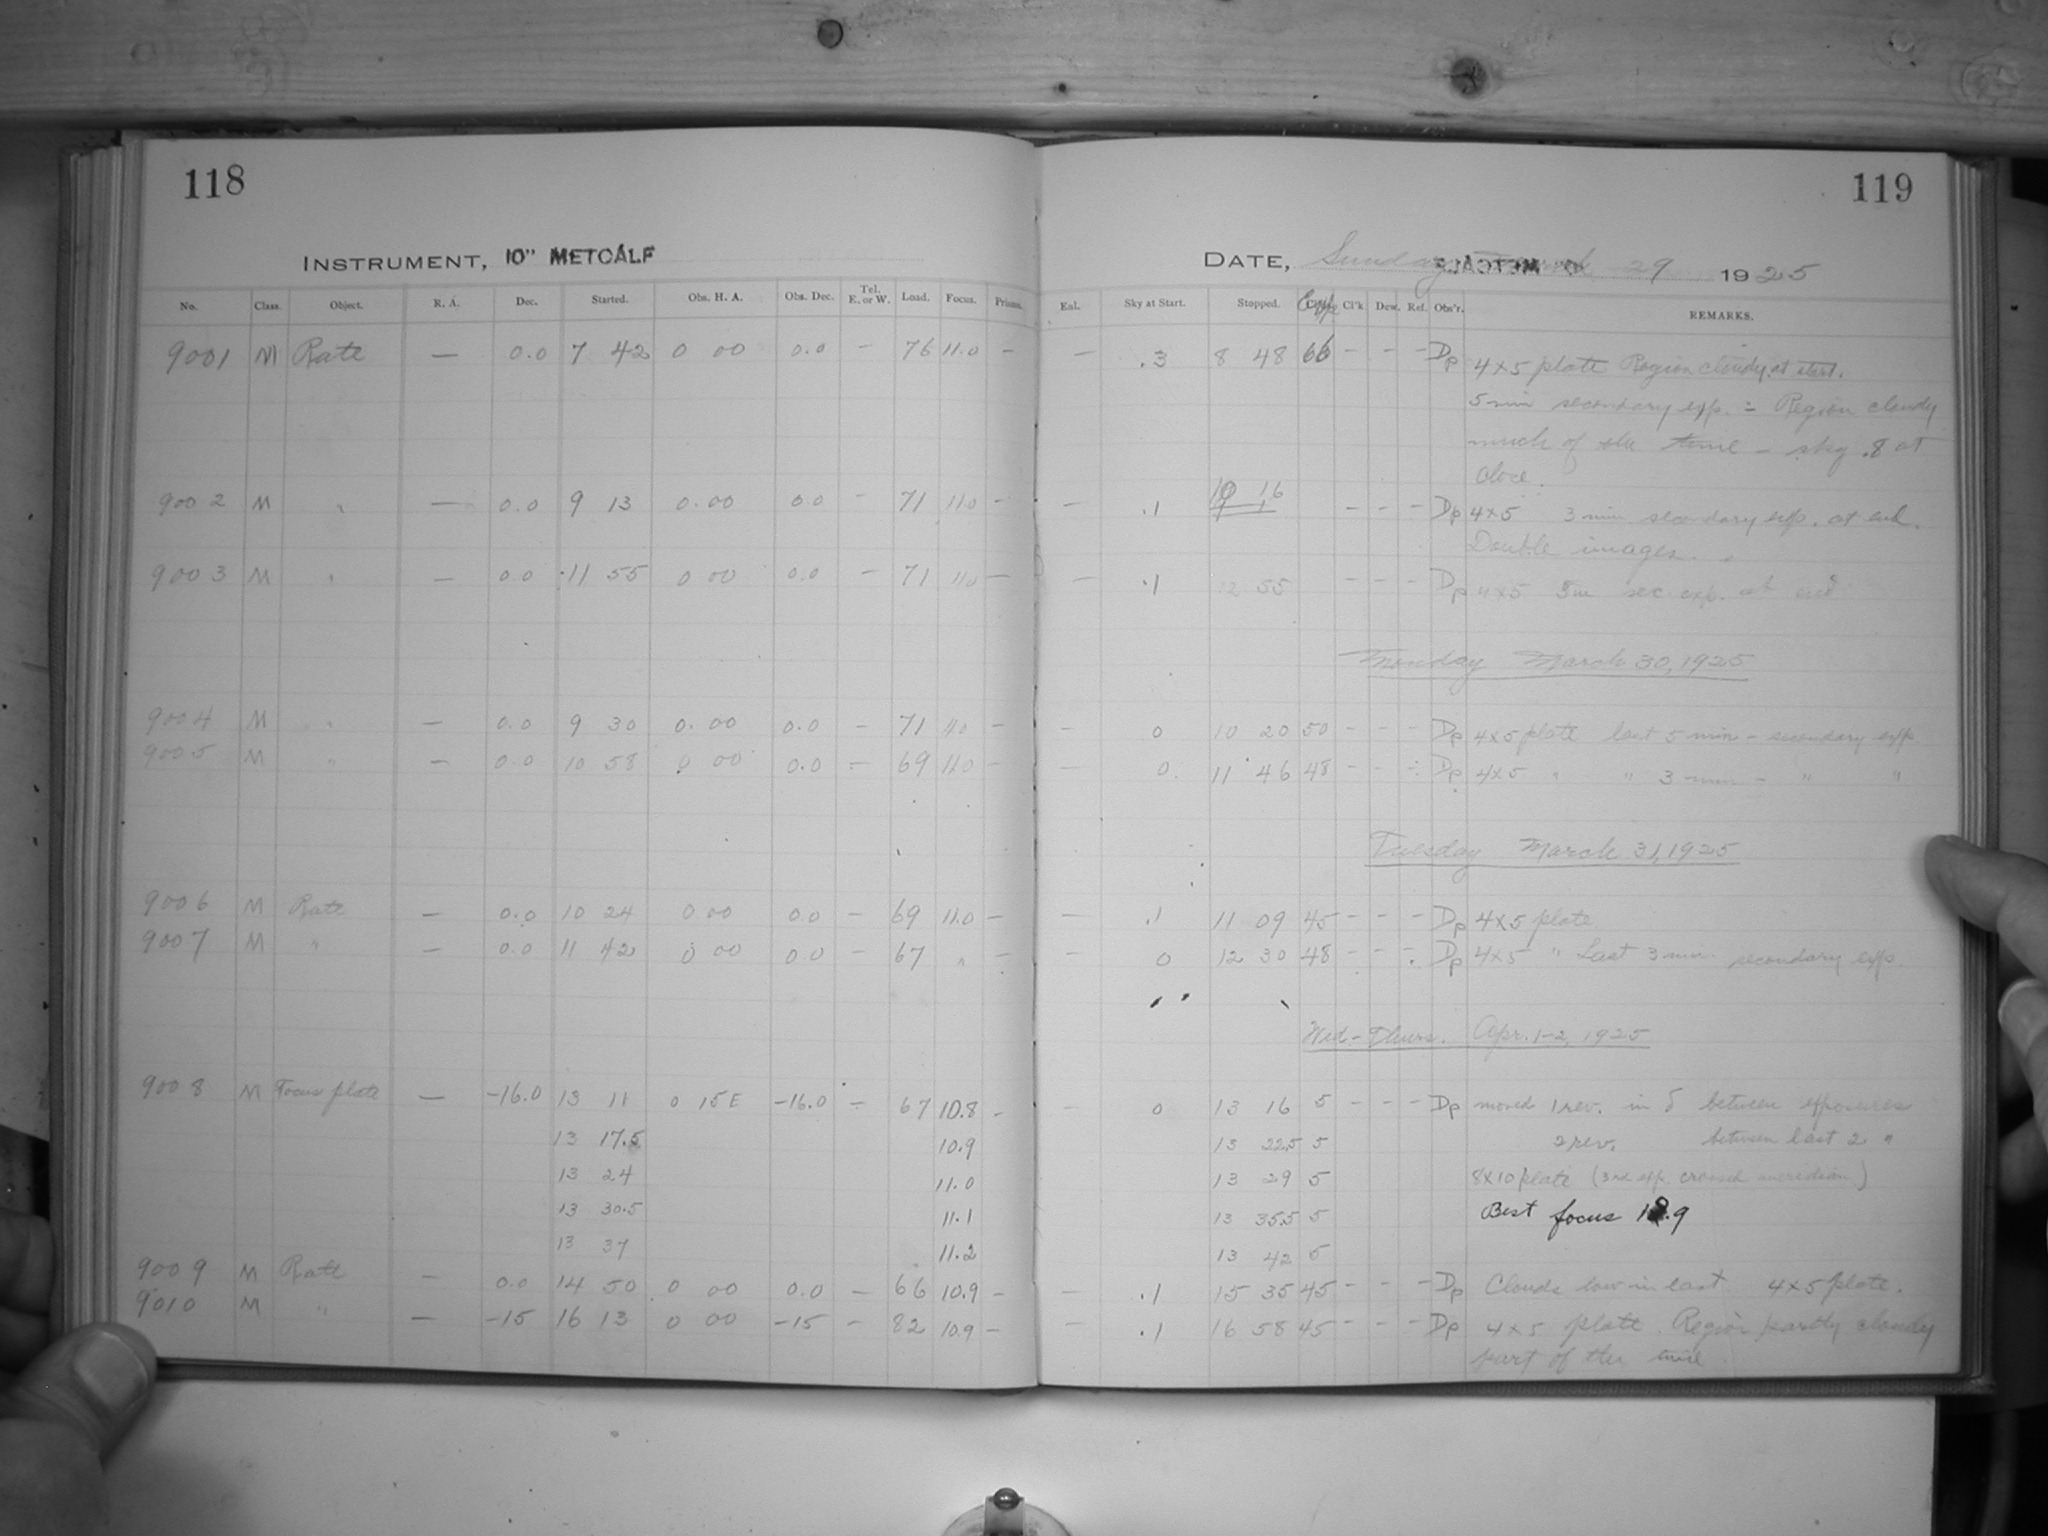 118
119
INSTRUMENT, 10" METCALF
DATE, Sunday March 29 1925
No. Class. Object. R. A. Dec. Started. Obs. H. A. Obs. Dec. Tel. E. or W. Load. Focus. Prisms. Enl. Sky at Start. Stopped. Exp Cl'k Dew. Ref. Obs'r. REMARKS.
9001 M Rate — 0.0 7 42 0 00 0.0 — 76 11.0 — — .3 8 48 66 - - - Dp 4x5 plate Region cloudy at start.
5 min secondary exp. - Region cloudy
much of the time - sky .8 at
close.
9002 M " — 0.0 9 13 0.00 0.0 - 71 11.0 - — .1 10 16 - - - Dp 4x5 3 min secondary exp. at end.
Double images.
9003 M " — 0.0 11 55 0 00 0.0 - 71 11.0 — — .1 12 55 - - - Dp 4x5 3m sec. exp. at end
Monday March 30, 1925
9004 M " — 0.0 9 30 0.00 0.0 - 71 11.0 - - 0 10 20 50 - - - Dp 4x5 plate last 5 min - secondary exp.
9005 M " — 0.0 10 58 0 00 0.0 - 69 11.0 - — 0 11 46 48 - - - Dp 4x5 " " 3 min - " "
Tuesday March 31, 1925
9006 M Rate — 0.0 10 24 0 00 0.0 - 69 11.0 - — .1 11 09 45 - - - Dp 4x5 plate
9007 M " — 0.0 11 42 0 00 0.0 - 67 " - - 0 12 30 48 - - - Dp 4x5 " Last 3 min. secondary exp.
Wed-Thurs. Apr. 1-2, 1925
9008 M Focus plate — -16.0 13 11 0 15E -16.0 - 67 10.8 - - 0 13 16 5 - - - Dp moved 1 rev. in δ between exposures
13 17.5 10.9 13 22.5 5 2 rev. between last 2 "
13 24 11.0 13 29 5 8x10 plate (3rd exp. crossed meridian)
13 30.5 11.1 13 35.5 5 Best focus 10.9
13 37 11.2 13 42 5
9009 M Rate — 0.0 14 50 0 00 0.0 — 66 10.9 - — .1 15 35 45 - - - Dp Clouds low in east. 4x5 plate.
9010 M " — -15 16 13 0 00 -15 - 82 10.9 — - .1 16 58 45 - - - Dp 4x5 plate. Region partly cloudy
part of the time.